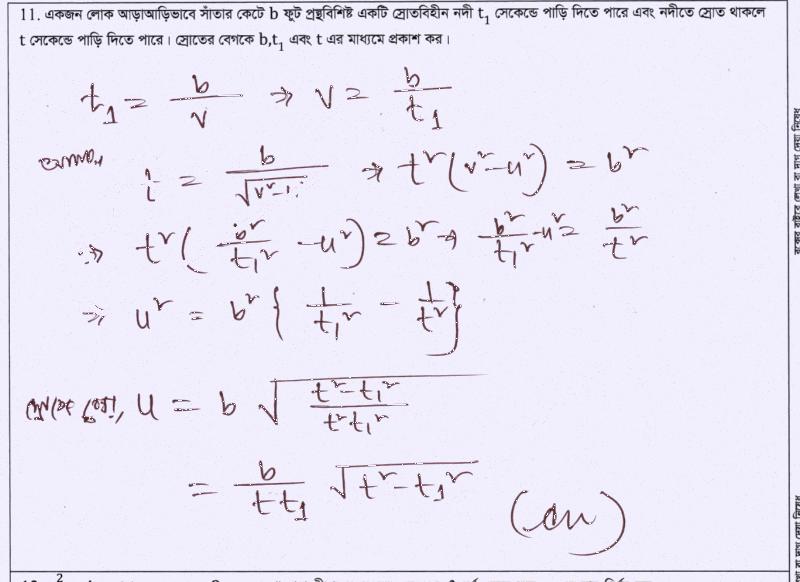 11. একজন লোক আড়াআড়িভাবে সাঁতার কেটে b ফুট প্রস্থবিশিষ্ট একটি স্রোতবিহীন নদী t₁ সেকেন্ডে পাড়ি দিতে পারে এবং নদীতে স্রোত থাকলে
t সেকেন্ডে পাড়ি দিতে পারে। স্রোতের বেগকে b,t₁ এবং t এর মাধ্যমে প্রকাশ কর।
t₁ = b/v ⇒ v = b/t₁
t = b/√(v²-u²) ⇒ t²(v²-u²) = b²
⇒ t²(b²/t₁² - u²) = b² ⇒ b²/t₁² - u² = b²/t²
⇒ u² = b² {1/t₁² - 1/t²}
u = b √((t²-t₁²)/(t²t₁²))
= b/(tt₁) √(t²-t₁²)
(Ans)